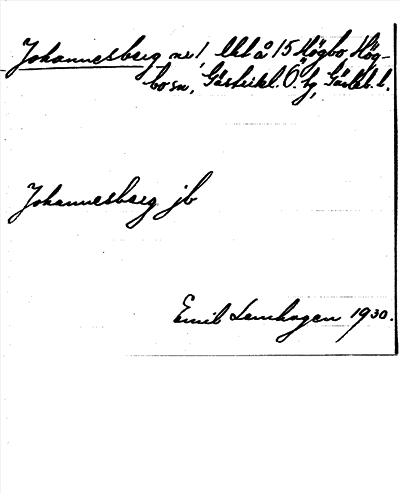 Johannesberg nr 1, Utl å 15 Högbo Hög-
bo sn, Gästrikl. Ö. hg, Gävleb. l.
Johannesberg jb
Emil Lemhagen 1930.